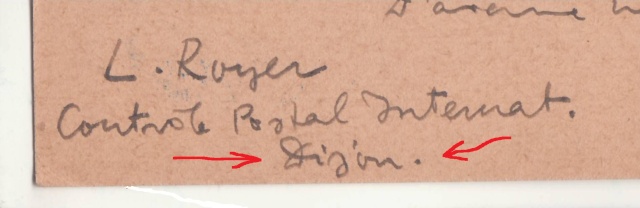 D'avance
L. Royer
Contrôle Postal Internat.
Dijon.